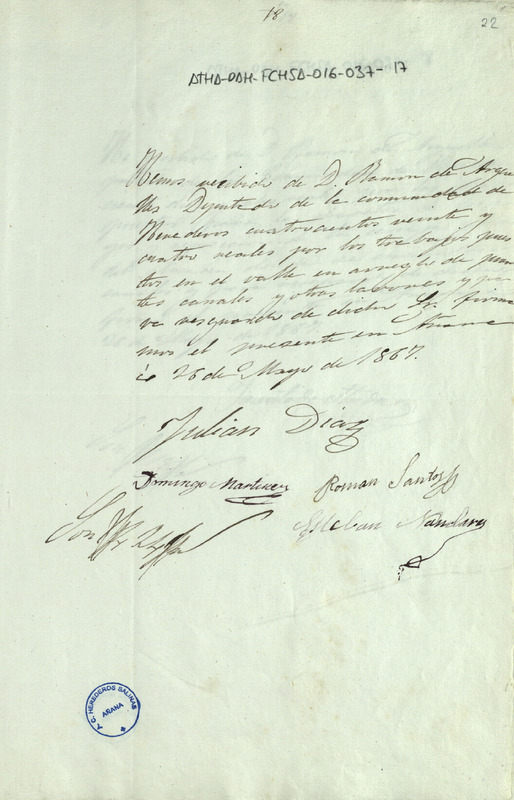 18
22
ATHA-DAH-FCHSA-016-037-17
Hemos recibido de D. Ramon de Argue
lles Diputado de la comunidad de
Herederos cuatrocientos veinte y
cuatro reales por los trabajos pues
tos en el valle en arreglo de puen
tes canales y otras labores y pa
ra resguardo de dicho Sr. firma
mos el presente en Arana
á 26 de Mayo de 1867.
Julian Diaz
Domingo Martinez Roman Santos
Son 424 Esteban Nanclares
C. HEREDEROS SALINAS
ARANA